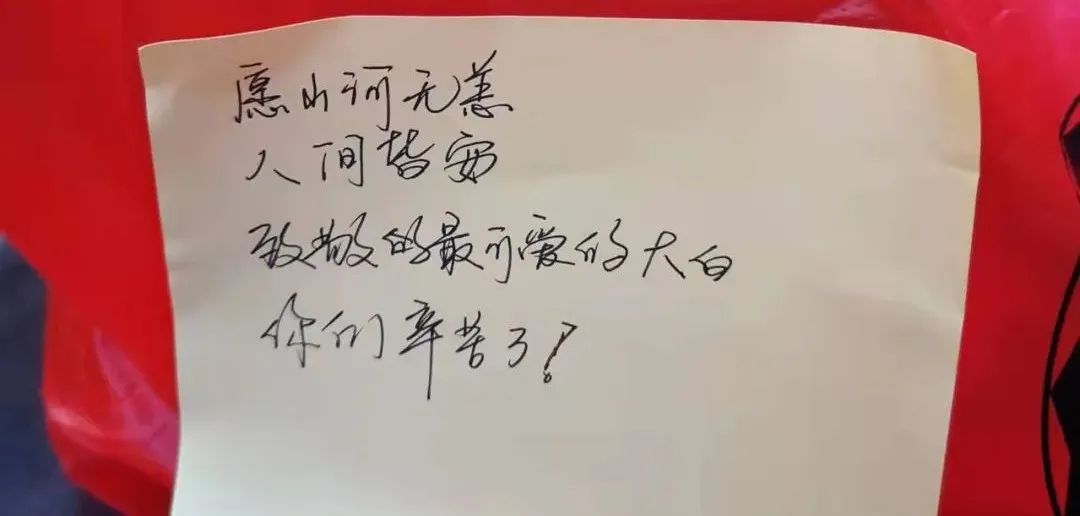 愿山河无恙
人间皆安
致敬的最可爱的大白
你们辛苦了!